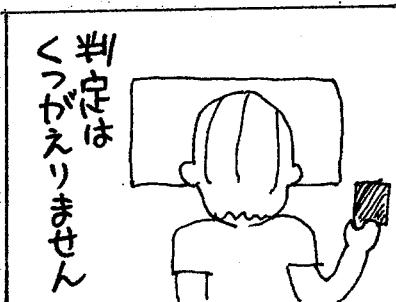 判定は
くつがえりません